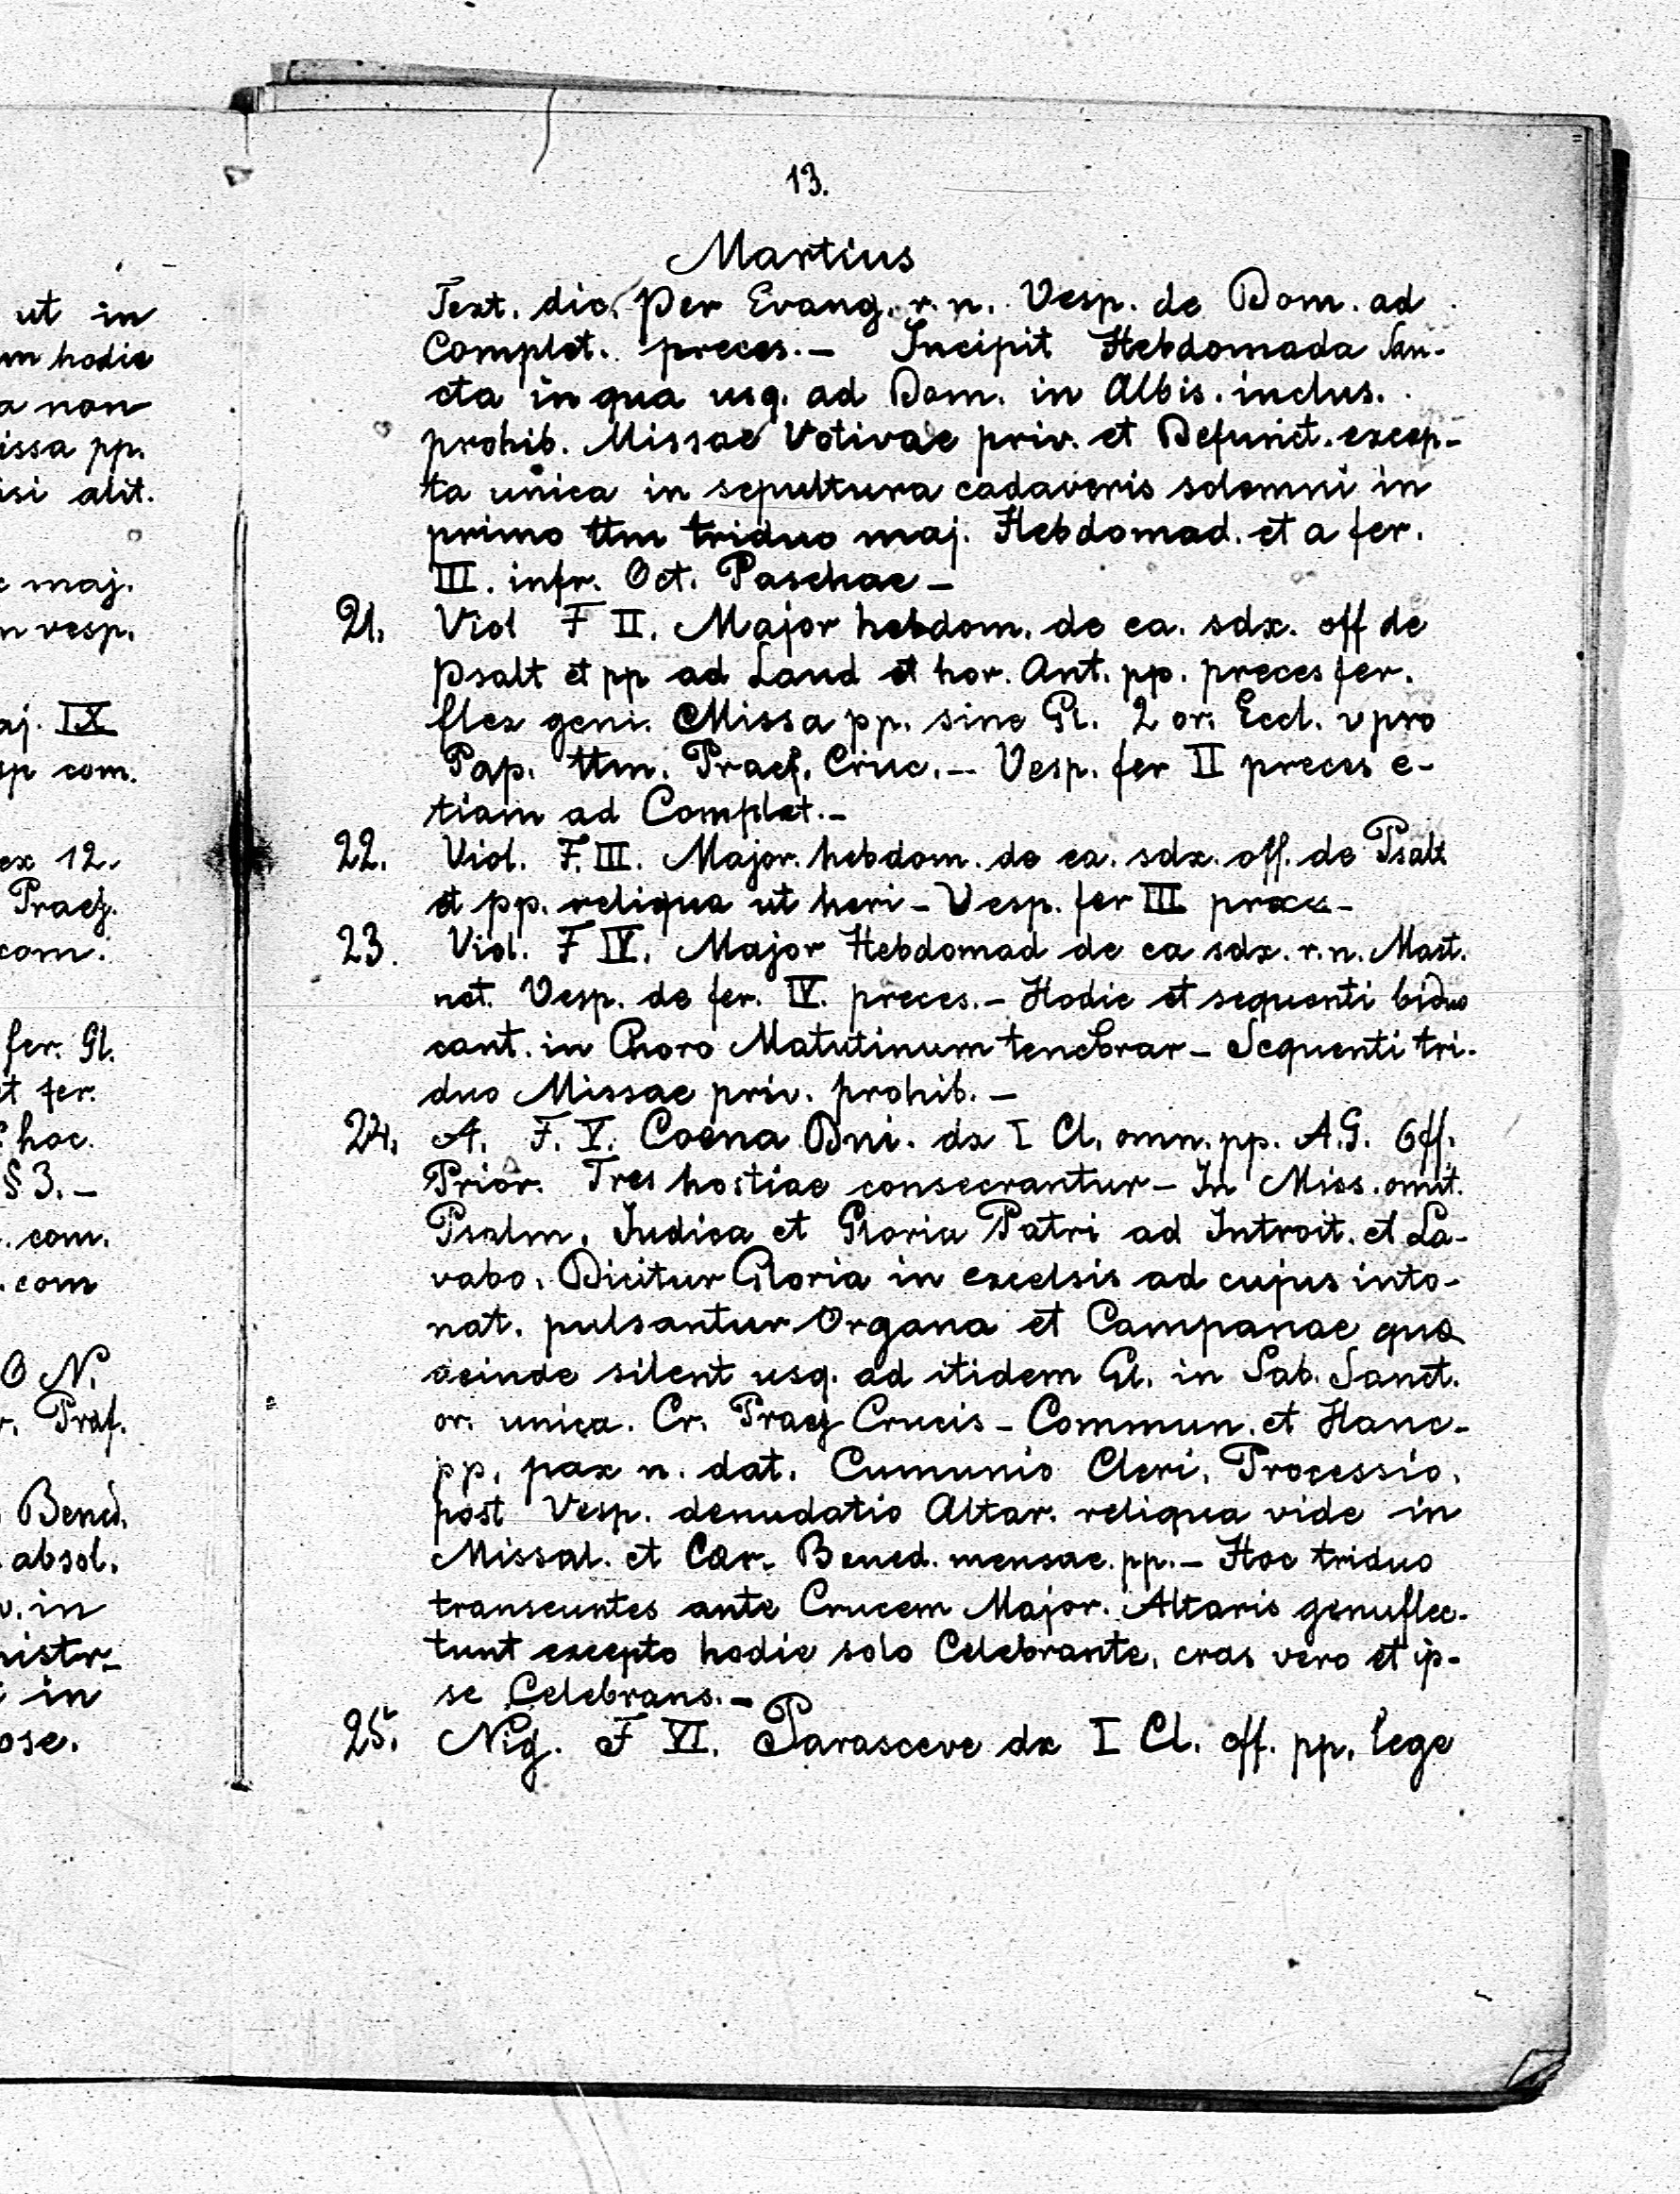 13.
Martius
Text. dic. Per Evang. r. n. Vesp. de Dom. ad
Complet. preces.— Incipit Hebdomada San-
cta in qua usq. ad Dom. in Albis. inclus.
prohib. Missae Votivae priv. et Defunct. excep-
ta unica in sepultura cadaveris solemni in
primo ttm triduo maj. Hebdomad. et a fer.
III. infr. Oct. Paschae —
21. Viol F II. Major hebdom. de ea. sdx. off de
Psalt et pp ad Laud et hor. Ant. pp. preces fer.
flex geni. Missa pp. sine Gl. 2 or. Eccl. v pro
Pap. ttm. Praef. Cruc.— Vesp. fer II preces e-
tiam ad Complet.—
22. Viol. F. III. Major. hebdom. de ea. sdx. off. de Psalt
et pp. reliqua ut heri — Vesp. fer III preces —
23. Viol. F IV. Major Hebdomad de ea sdx. r. n. Mast.
not. Vesp. de fer. IV. preces.— Hodie et sequenti biduo
cant. in Choro Matutinum tenebrar — Sequenti tri-
duo Missae priv. prohib. —
24. A. F. V. Coena Dni. dx I Cl. omn. pp. A.G. Off.
Prior. Tres hostiae consecrantur — In Miss. omit.
Psalm. Judica et Gloria Patri ad Introit. et La-
vabo. Dicitur Gloria in excelsis ad cujus into-
nat. pulsantur Organa et Campanae quae
deinde silent usq. ad itidem Gl. in Sab. Sanct.
or. unica. Cr. Praef Crucis — Commun. et Hanc-
pp. pax n. dat. Cumunio Cleri. Processio.
post Vesp. denudatio Altar. reliqua vide in
Missal. et Caer. Bened. mensae. pp.— Hoc triduo
transeuntes ante Crucem Major. Altaris genuflec-
tunt excepto hodie solo Celebrante, cras vero et ip-
se Celebrans.—
25. Nig. F VI. Parasceve dx I Cl. off. pp. lege
ut in
hodie
non
issa pp.
isi alit.
maj.
vesp.
aj. IX
sp com.
ex 12.
Praef.
com.
fer. Gl.
et fer.
hoc.
§ 3.—
com.
com
O N.
Praf.
Bened.
absol.
in
nistr-
in
ose.